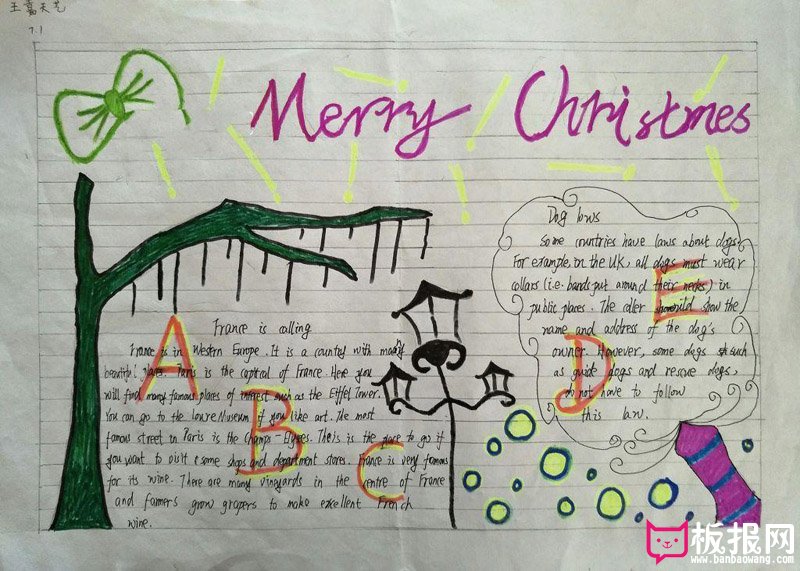 王嘉天艺
7.1
Merry Christmes
Dog laws
Some countries have laws about dogs.
For example, in the UK, all dogs must wear
collars (i.e. bands put around their necks) in
public places. The coller should show the
name and address of the dog's
owner. However, some dogs such
as guide dogs and rescue dogs
do not have to follow
this law.
E
D
France is calling
France is in Western Europe. It is a country with many
beautiful places. Paris is the capital of France. Here you
will find many famous places of interest such as the Eiffel Tower.
You can go to the Louvre Museum if you like art. The most
famous street in Paris is the Champs-Elysees. This is the place to go if
you want to visit some shops and department stores. France is very famous
for its wine. There are many vineyards in the centre of France
and farmers grow grapers to make excellent French
wine.
A
B
C
板报网
www.banbaowang.com